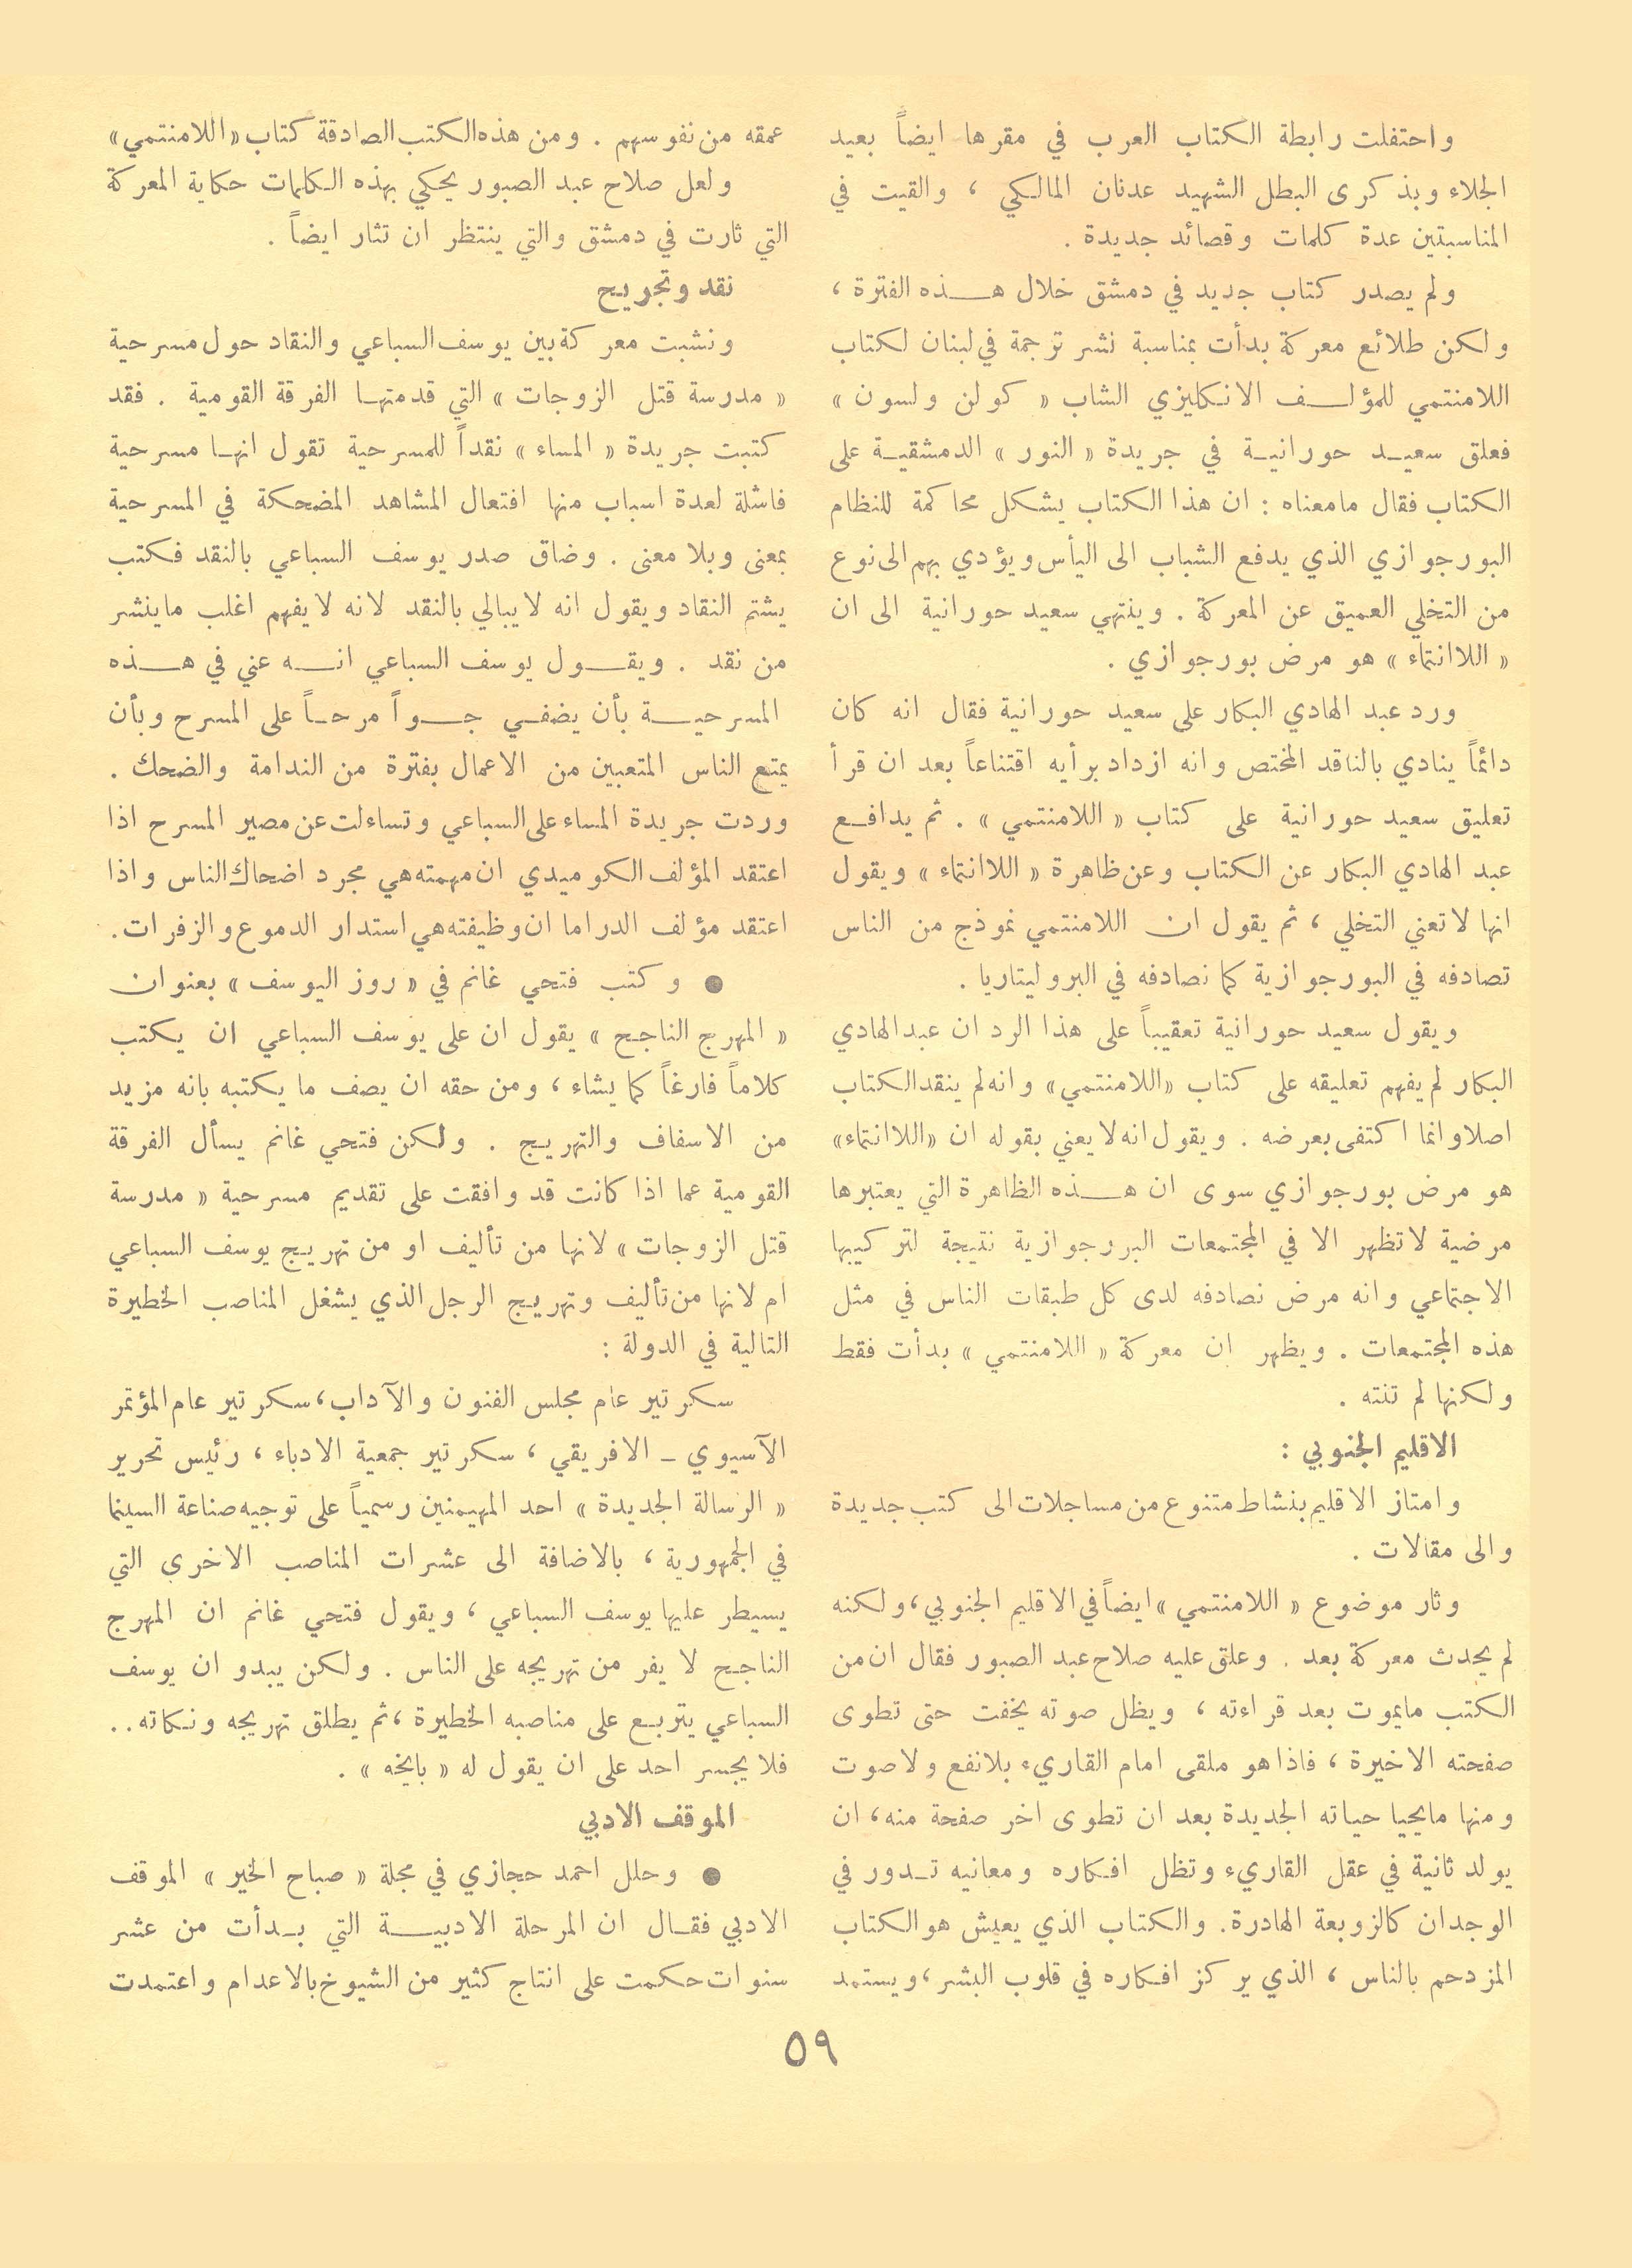 واحتفلت رابطة الكتاب العرب في مقرها ايضاً بعيد
الجلاء وبذكرى البطل الشهيد عدنان المالكي ، والقيت في
المناسبتين عدة كلمات وقصائد جديدة .
ولم يصدر كتاب جديد في دمشق خلال هذه الفترة ،
ولكن طلائع معركة بدأت بمناسبة نشر ترجمة في لبنان لكتاب
اللامنتمي للمؤلف الانكليزي الشاب « كولن ولسون »
فعلق سعيد حورانية في جريدة « النور » الدمشقية على
الكتاب فقال مامعناه : ان هذا الكتاب يشكل محاكمة للنظام
البورجوازي الذي يدفع الشباب الى اليأس ويؤدي بهم الى نوع
من التخلي العميق عن المعركة . وينتهي سعيد حورانية الى ان
« اللاانتماء » هو مرض بورجوازي .
ورد عبد الهادي البكار على سعيد حورانية فقال انه كان
دائماً ينادي بالناقد المختص وانه ازداد برأيه اقتناعاً بعد ان قرأ
تعليق سعيد حورانية على كتاب « اللامنتمي » . ثم يدافع
عبد الهادي البكار عن الكتاب وعن ظاهرة « اللاانتماء » ويقول
انها لا تعني التخلي ، ثم يقول ان اللامنتمي نموذج من الناس
تصادفه في البورجوازية كما نصادفه في البروليتاريا .
ويقول سعيد حورانية تعقيباً على هذا الرد ان عبد الهادي
البكار لم يفهم تعليقه على كتاب «اللامنتمي» وانه لم ينقد الكتاب
اصلا وانما اكتفى بعرضه . ويقول انه لا يعني بقوله ان «اللاانتماء»
هو مرض بورجوازي سوى ان هذه الظاهرة التي يعتبرها
مرضية لا تظهر الا في المجتمعات البررجوازية نتيجة لتركيبها
الاجتماعي وانه مرض نصادفه لدى كل طبقات الناس في مثل
هذه المجتمعات . ويظهر ان معركة « اللامنتمي » بدأت فقط
ولكنها لم تنته .
الاقليم الجنوبي :
وامتاز الاقليم بنشاط متنوع من مساجلات الى كتب جديدة
والى مقالات .
وثار موضوع « اللامنتمي » ايضاً في الاقليم الجنوبي ، ولكنه
لم يحدث معركة بعد . وعلق عليه صلاح عبد الصبور فقال ان من
الكتب مايموت بعد قراءته ، ويظل صوته يخفت حتى تطوى
صفحته الاخيرة ، فاذا هو ملقى امام القاريء بلا نفع ولا صوت
ومنها مايحيا حياته الجديدة بعد ان تطوى اخر صفحة منه ، ان
يولد ثانية في عقل القاريء وتظل افكاره ومعانيه تدور في
الوجدان كالزوبعة الهادرة . والكتاب الذي يعيش هو الكتاب
المزدحم بالناس ، الذي يركز افكاره في قلوب البشر ، ويستمد
عمقه من نفوسهم . ومن هذه الكتب الصادقة كتاب «اللامنتمي»
ولعل صلاح عبد الصبور يحكي بهذه الكلمات حكاية المعركة
التي ثارت في دمشق والتي ينتظر ان تثار ايضاً .
نقد وتجريح
ونشبت معركة بين يوسف السباعي والنقاد حول مسرحية
« مدرسة قتل الزوجات » التي قدمتها الفرقة القومية . فقد
كتبت جريدة « المساء » نقداً للمسرحية تقول انها مسرحية
فاشلة لعدة اسباب منها افتعال المشاهد المضحكة في المسرحية
بمعنى وبلا معنى . وضاق صدر يوسف السباعي بالنقد فكتب
يشتم النقاد ويقول انه لا يبالي بالنقد لانه لا يفهم اغلب ماينشر
من نقد . ويقول يوسف السباعي انه عني في هذه
المسرحية بأن يضفي جواً مرحاً على المسرح وبأن
يمتع الناس المتعبين من الاعمال بفترة من الندامة والضحك .
وردت جريدة المساء على السباعي وتساءلت عن مصير المسرح اذا
اعتقد المؤلف الكوميدي ان مهمته هي مجرد اضحاك الناس واذا
اعتقد مؤلف الدراما ان وظيفته هي استدار الدموع والزفرات .
● وكتب فتحي غانم في « روز اليوسف » بعنوان
« المهرج الناجح » يقول ان على يوسف السباعي ان يكتب
كلاماً فارغاً كما يشاء ، ومن حقه ان يصف ما يكتبه بانه مزيد
من الاسفاف والتهريج . ولكن فتحي غانم يسأل الفرقة
القومية عما اذا كانت قد وافقت على تقديم مسرحية « مدرسة
قتل الزوجات » لانها من تأليف او من تهريج يوسف السباعي
ام لانها من تأليف وتهريج الرجل الذي يشغل المناصب الخطيرة
التالية في الدولة :
سكرتير عام مجلس الفنون والآداب ، سكرتير عام المؤتمر
الآسيوي - الافريقي ، سكرتير جمعية الادباء ، رئيس تحرير
« الرسالة الجديدة » احد المهيمنين رسمياً على توجيه صناعة السينما
في الجمهورية ، بالاضافة الى عشرات المناصب الاخرى التي
يسيطر عليها يوسف السباعي ، ويقول فتحي غانم ان المهرج
الناجح لا يفر من تهريجه على الناس . ولكن يبدو ان يوسف
السباعي يتربع على مناصبه الخطيرة ، ثم يطلق تهريجه ونكاته ..
فلا يجسر احد على ان يقول له « بايخه » .
الموقف الادبي
● وحلل احمد حجازي في مجلة « صباح الخير » الموقف
الادبي فقال ان المرحلة الادبية التي بدأت من عشر
سنوات حكمت على انتاج كثير من الشيوخ بالاعدام واعتمدت
٥٩